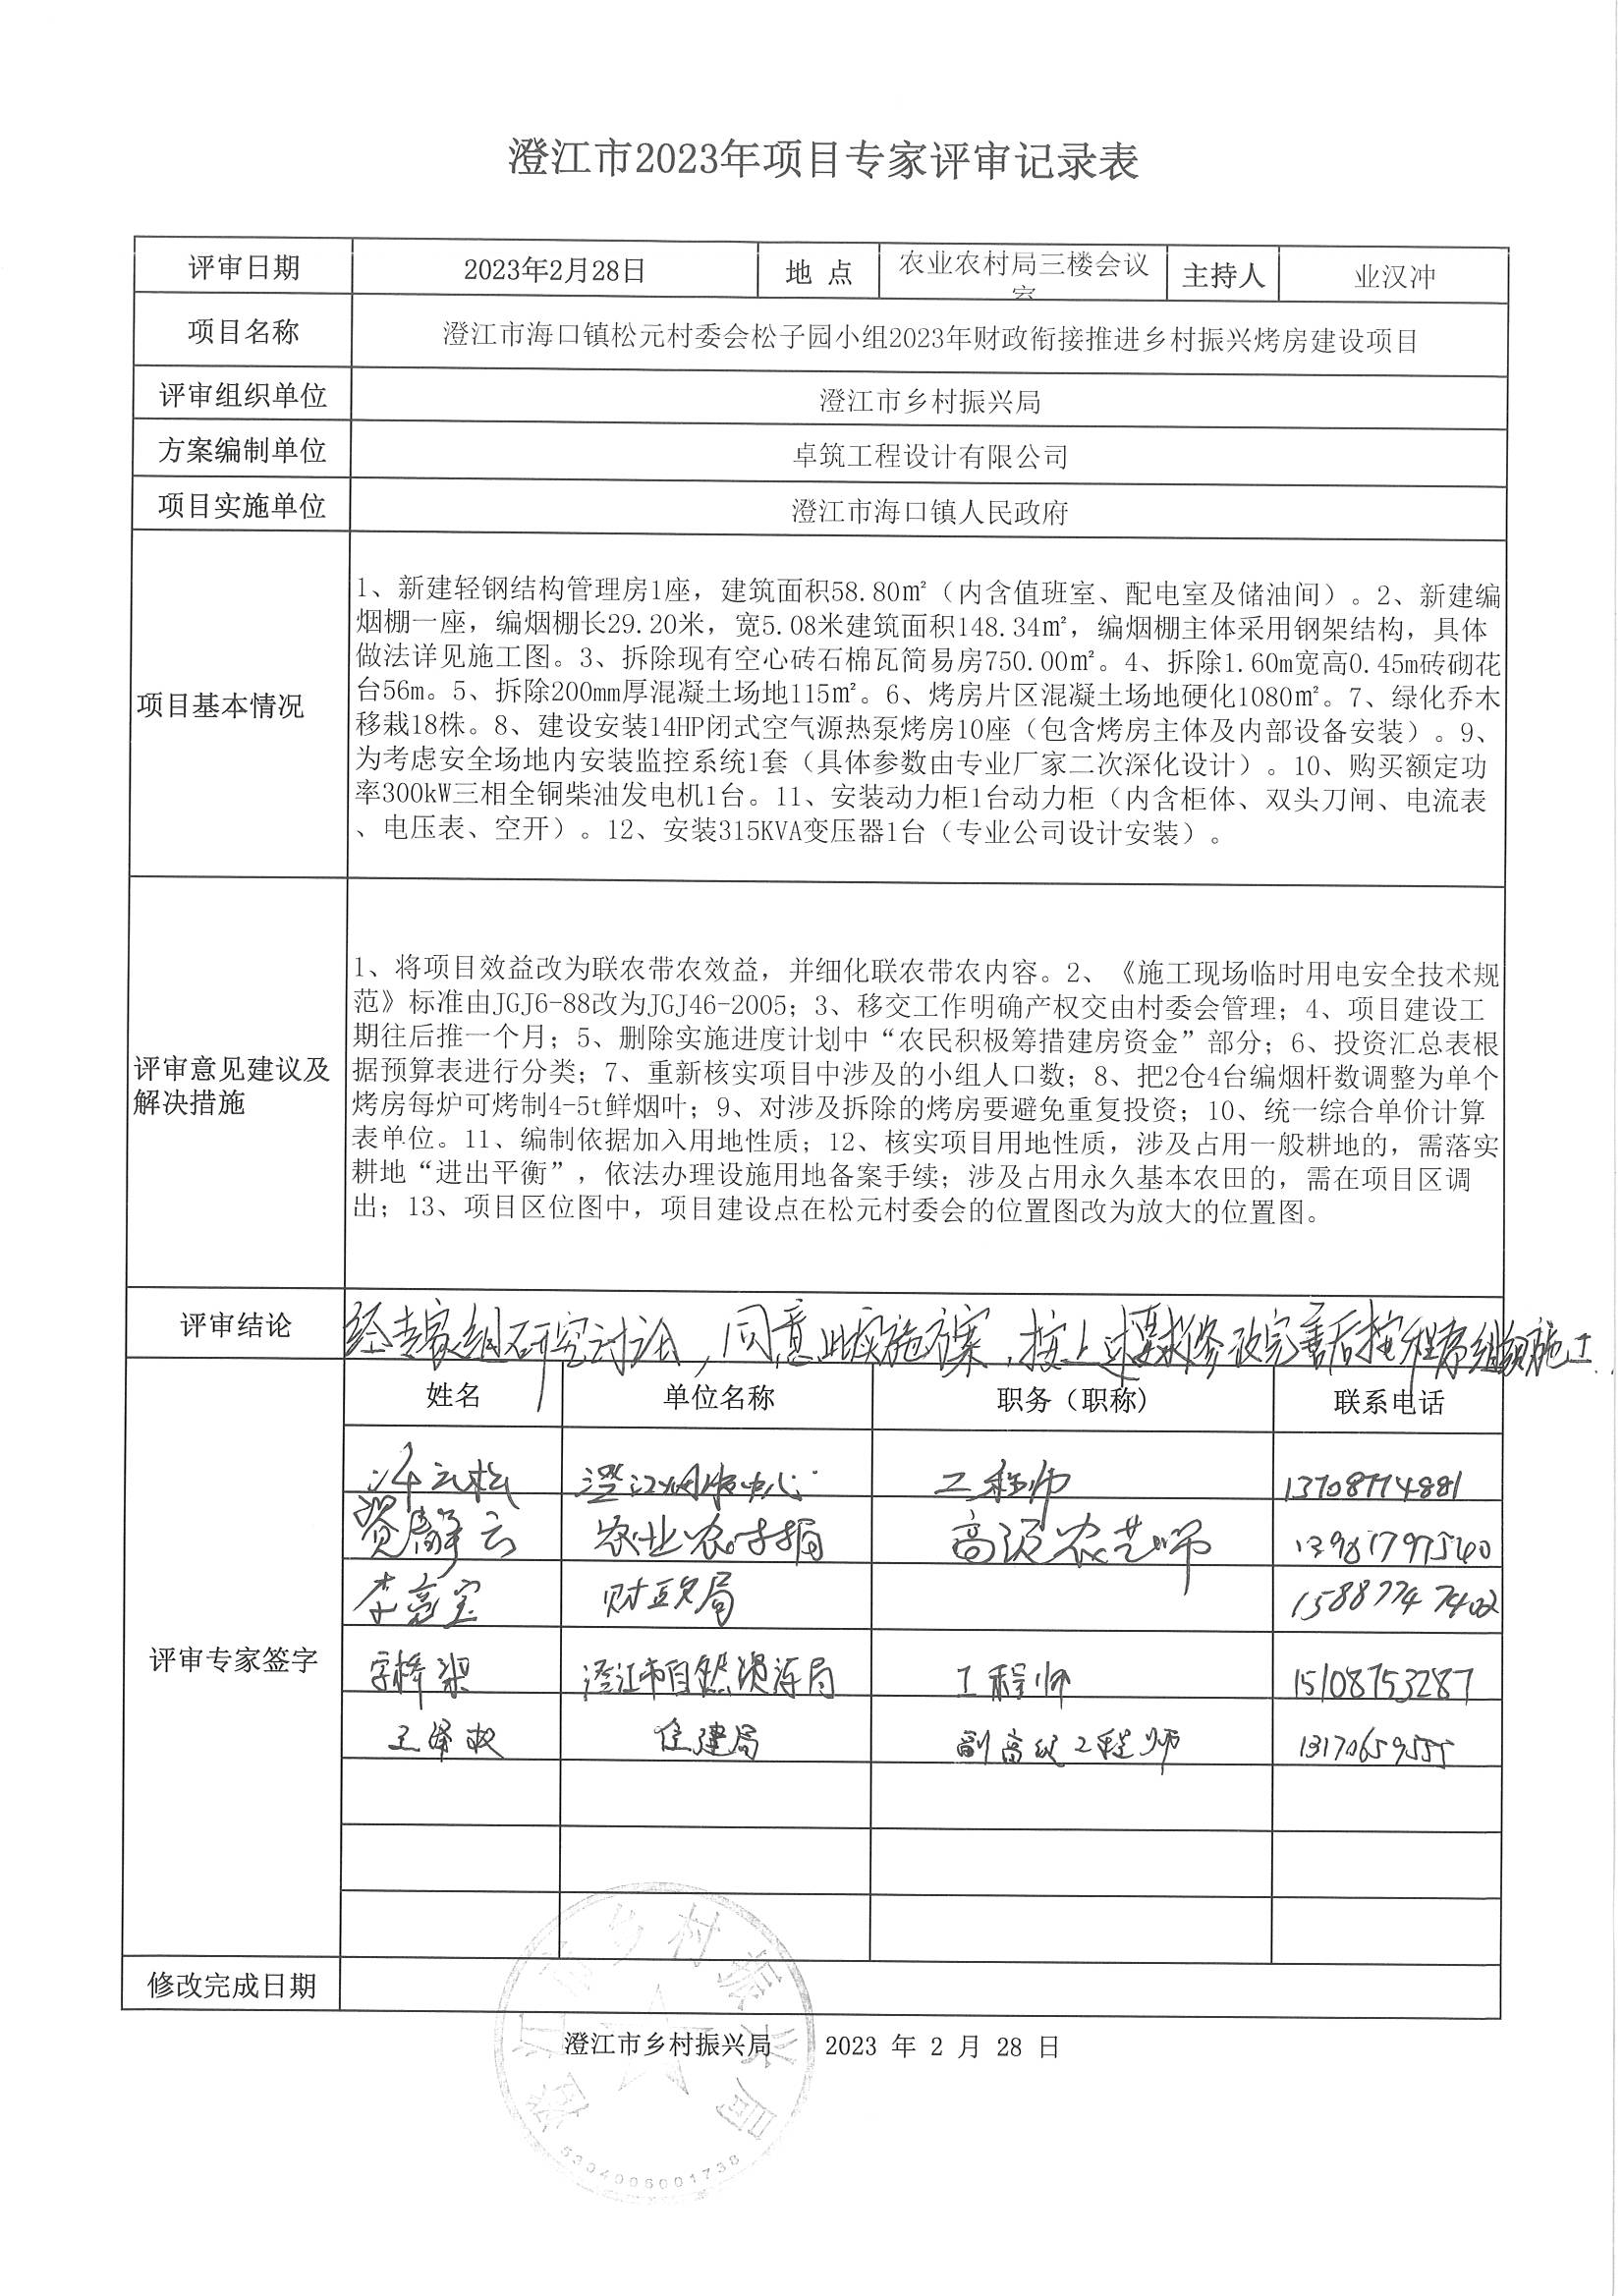 澄江市2023年项目专家评审记录表
评审日期 2023年2月28日 地 点 农业农村局三楼会议室 主持人 业汉冲
项目名称 澄江市海口镇松元村委会松子园小组2023年财政衔接推进乡村振兴烤房建设项目
评审组织单位 澄江市乡村振兴局
方案编制单位 卓筑工程设计有限公司
项目实施单位 澄江市海口镇人民政府
项目基本情况
1、新建轻钢结构管理房1座，建筑面积58.80㎡（内含值班室、配电室及储油间）。2、新建编
烟棚一座，编烟棚长29.20米，宽5.08米建筑面积148.34㎡，编烟棚主体采用钢架结构，具体
做法详见施工图。3、拆除现有空心砖石棉瓦简易房750.00㎡。4、拆除1.60m宽高0.45m砖砌花
台56m。5、拆除200mm厚混凝土场地115㎡。6、烤房片区混凝土场地硬化1080㎡。7、绿化乔木
移栽18株。8、建设安装14HP闭式空气源热泵烤房10座（包含烤房主体及内部设备安装）。9、
为考虑安全场地内安装监控系统1套（具体参数由专业厂家二次深化设计）。10、购买额定功
率300kW三相全铜柴油发电机1台。11、安装动力柜1台动力柜（内含柜体、双头刀闸、电流表
、电压表、空开）。12、安装315KVA变压器1台（专业公司设计安装）。
评审意见建议及
解决措施
1、将项目效益改为联农带农效益，并细化联农带农内容。2、《施工现场临时用电安全技术规
范》标准由JGJ6-88改为JGJ46-2005；3、移交工作明确产权交由村委会管理；4、项目建设工
期往后推一个月；5、删除实施进度计划中“农民积极筹措建房资金”部分；6、投资汇总表根
据预算表进行分类；7、重新核实项目中涉及的小组人口数；8、把2仓4台编烟杆数调整为单个
烤房每炉可烤制4-5t鲜烟叶；9、对涉及拆除的烤房要避免重复投资；10、统一综合单价计算
表单位。11、编制依据加入用地性质；12、核实项目用地性质，涉及占用一般耕地的，需落实
耕地“进出平衡”，依法办理设施用地备案手续；涉及占用永久基本农田的，需在项目区调
出；13、项目区位图中，项目建设点在松元村委会的位置图改为放大的位置图。
评审结论 经专家组研究讨论，同意此实施方案，按上述要求修改完善后按程序组织施工.
评审专家签字
姓名 单位名称 职务（职称） 联系电话
云松 澄江 中心 工程师 13708774881
资静云 农业农村局 高级农艺师
李亮宝 财政局 15887747402
字桥梁 澄江市自然资源局 工程师 15108753287
王泽 住建局 副高级工程师 13170659555
修改完成日期
澄江市乡村振兴局 2023 年 2 月 28 日
澄江市乡村振兴局
5304006001738